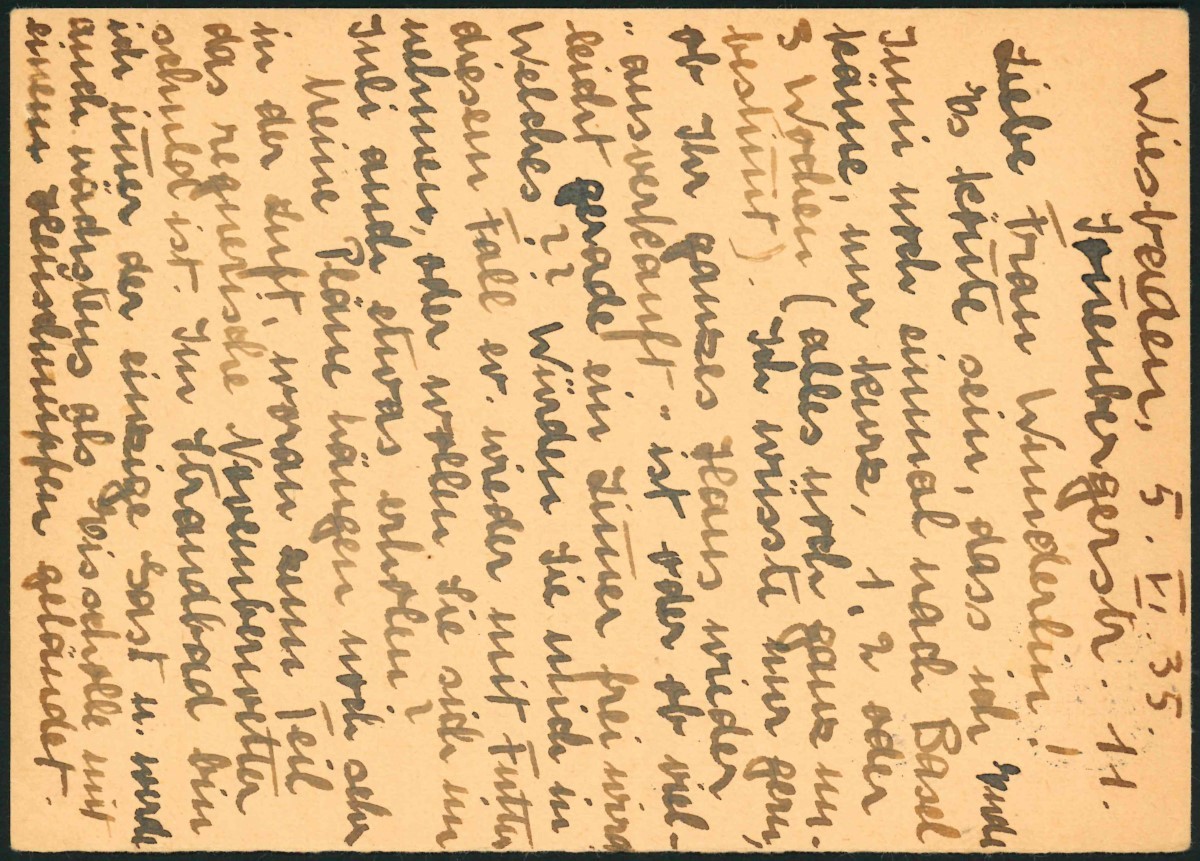 Wiesbaden, 5. VI. 35.
Sonenbergerstr. 11.
Liebe Frau Wunderlin!
Es könte sein, dass ich Ende
Juni noch einmal nach Basel
käme, nur kurz, 1, 2 oder
3 Wochen (alles noch ganz un-
bestimt). Ich wüsste nur gern,
ob Ihr ganzes Haus wieder
"ausverkauft" ist oder ob viel-
leicht gerade ein Zimer frei wird
Welches?? Würden Sie mich in
diesem Fall ev. wieder mit Futter
nehmen, oder wollen Sie sich im
Juli auch etwas erholen?
Meine Pläne hängen noch sehr
in der Luft, woran zum Teil
das regnerische Novemberwetter
schuld ist. Im Strandbad bin
ich imer der einzige Gast u. werde
auch nächstens als Eisscholle mit
einem Heuschnupfen geländet.